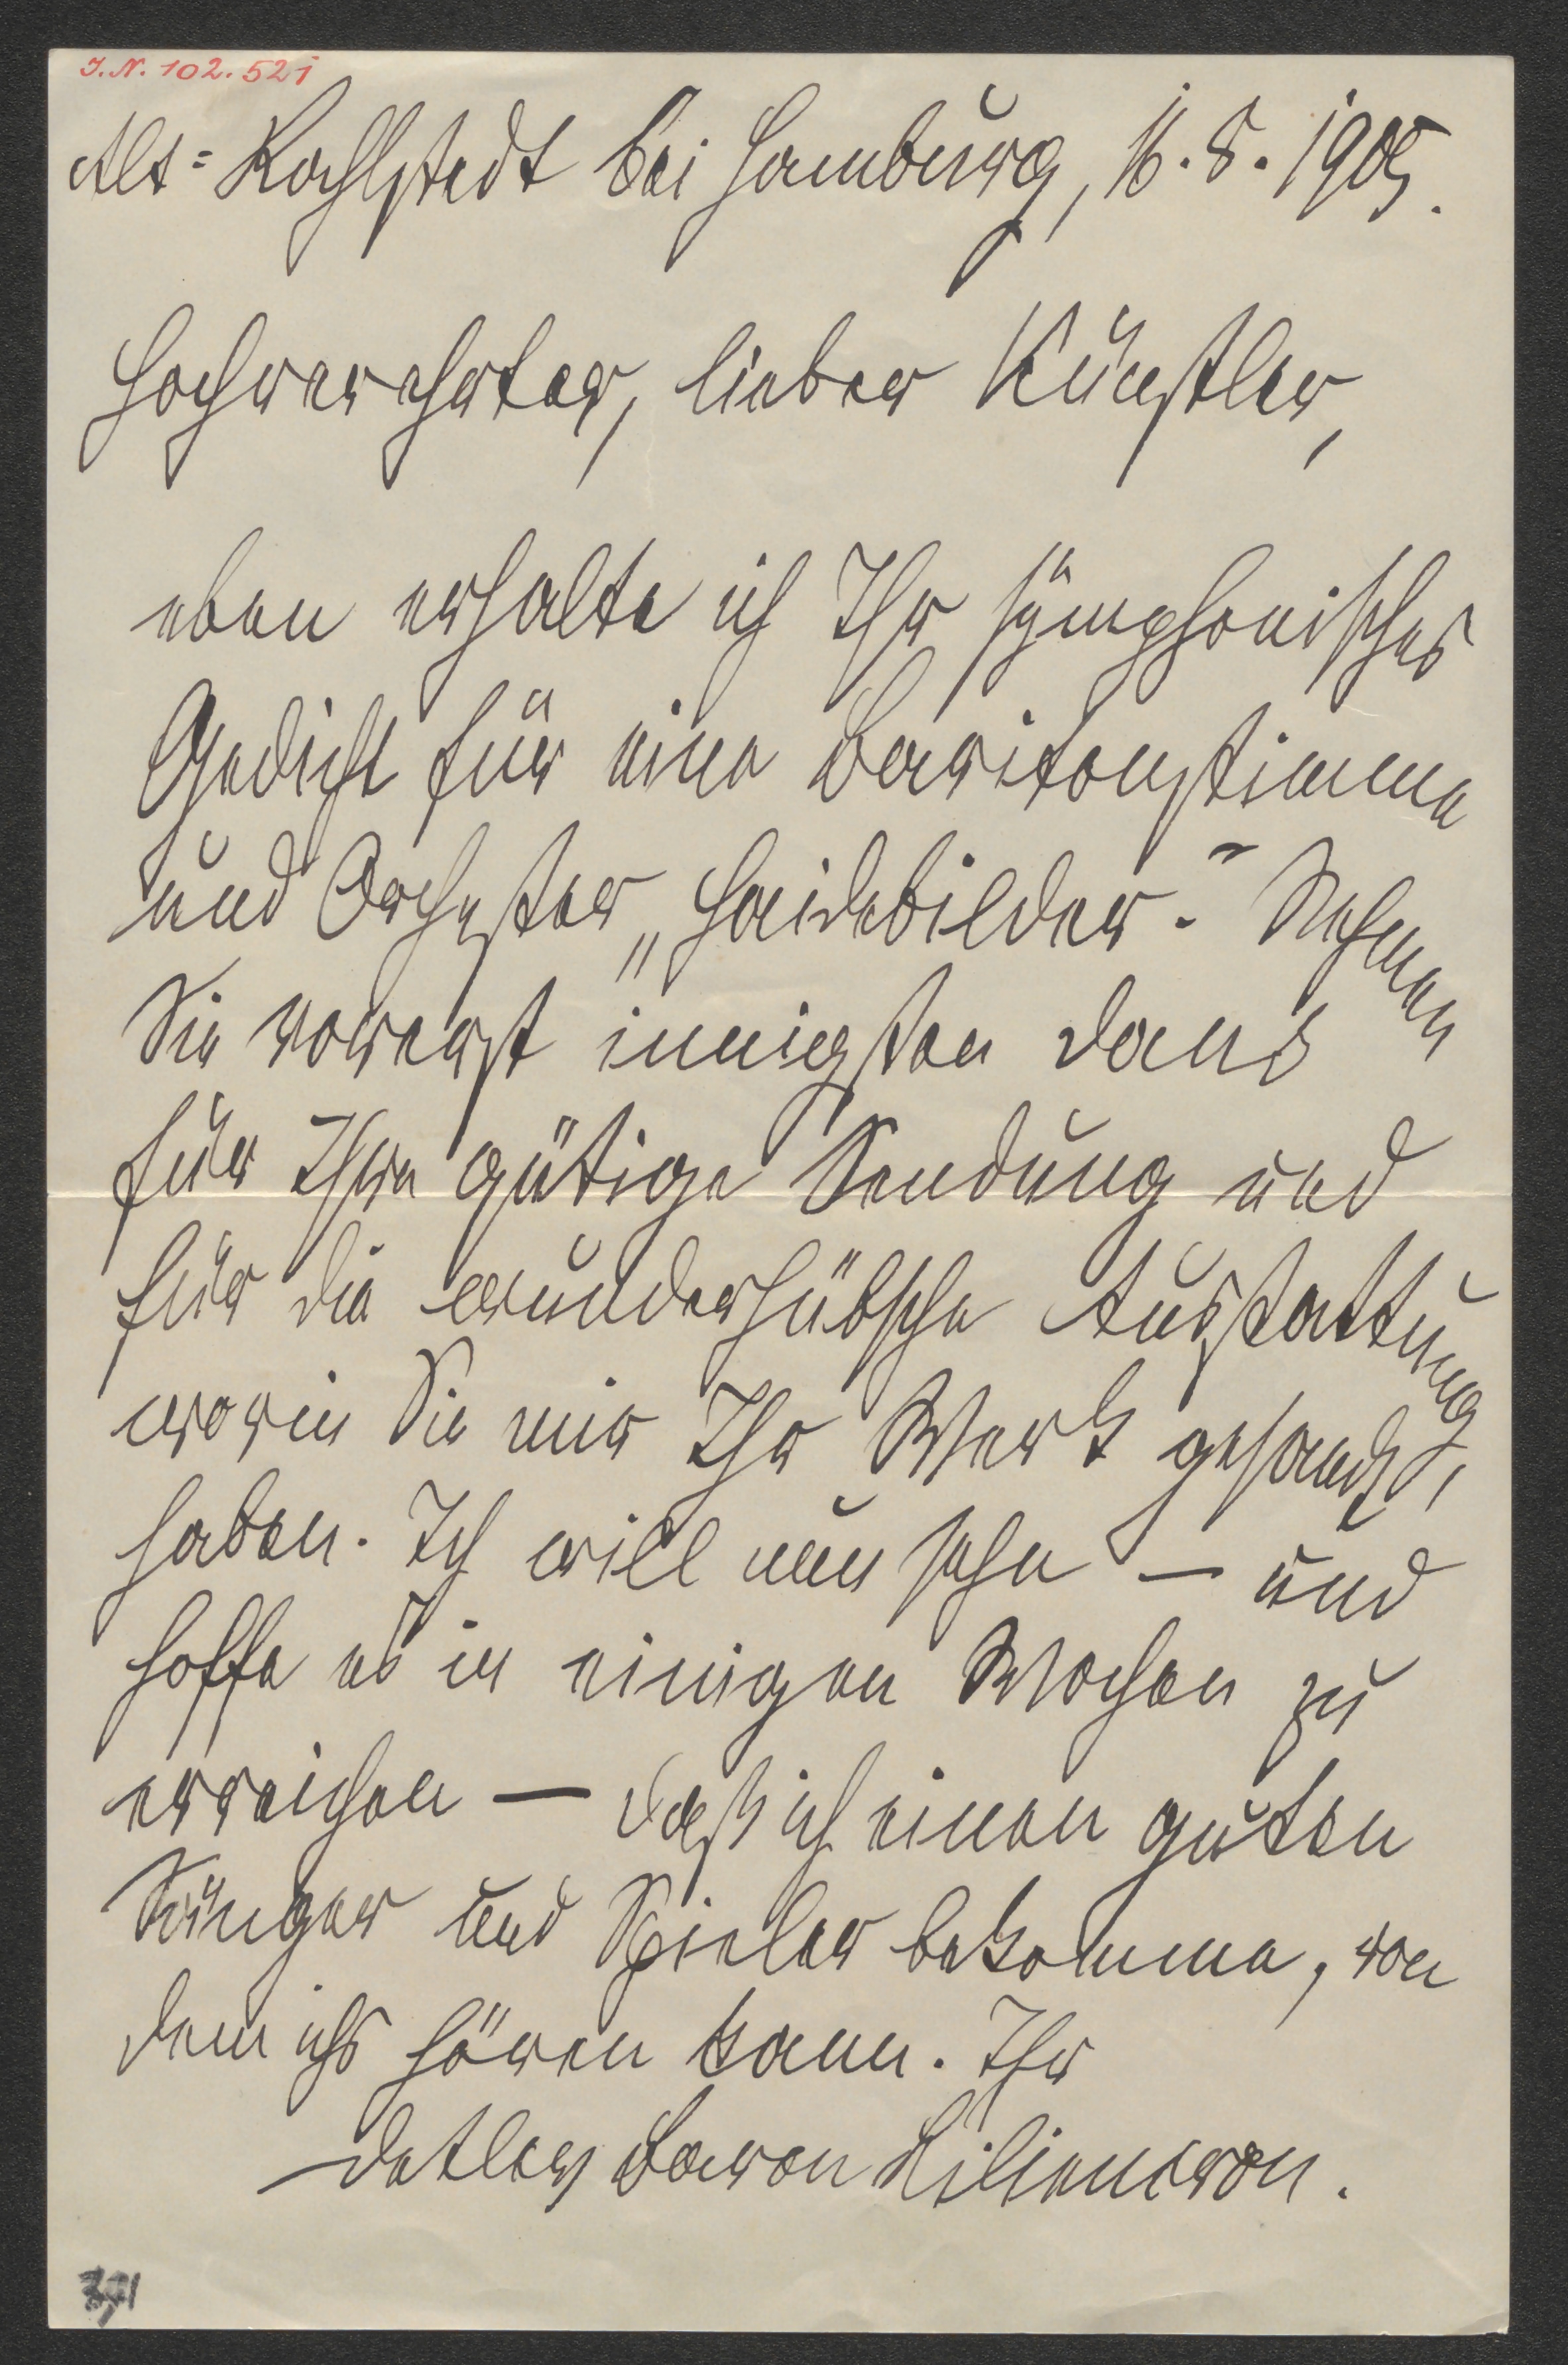 I.N. 102.521
Alt=Rahlstedt bei Hamburg, 16.8.1905.
Hochverehrter, lieber Künstler,
eben erhalte ich Ihr sÿmphonisches
Gedicht für eine Baritonstimme
und Orchester „Haidebilder.“ Nehmen
Sie vorerst innigsten Dank
für Ihre gütige Sendung und
für die wunderhübsche Ausstattung,
worin Sie mir Ihr Werk gesandt
haben. Ich will nun sehn — und
hoffe es in einigen Wochen zu
erreichen — daß ich einen guten
Sänger und Spieler bekomme, von
dem ichs hören kann. Ihr
Detlev Baron Liliencron.